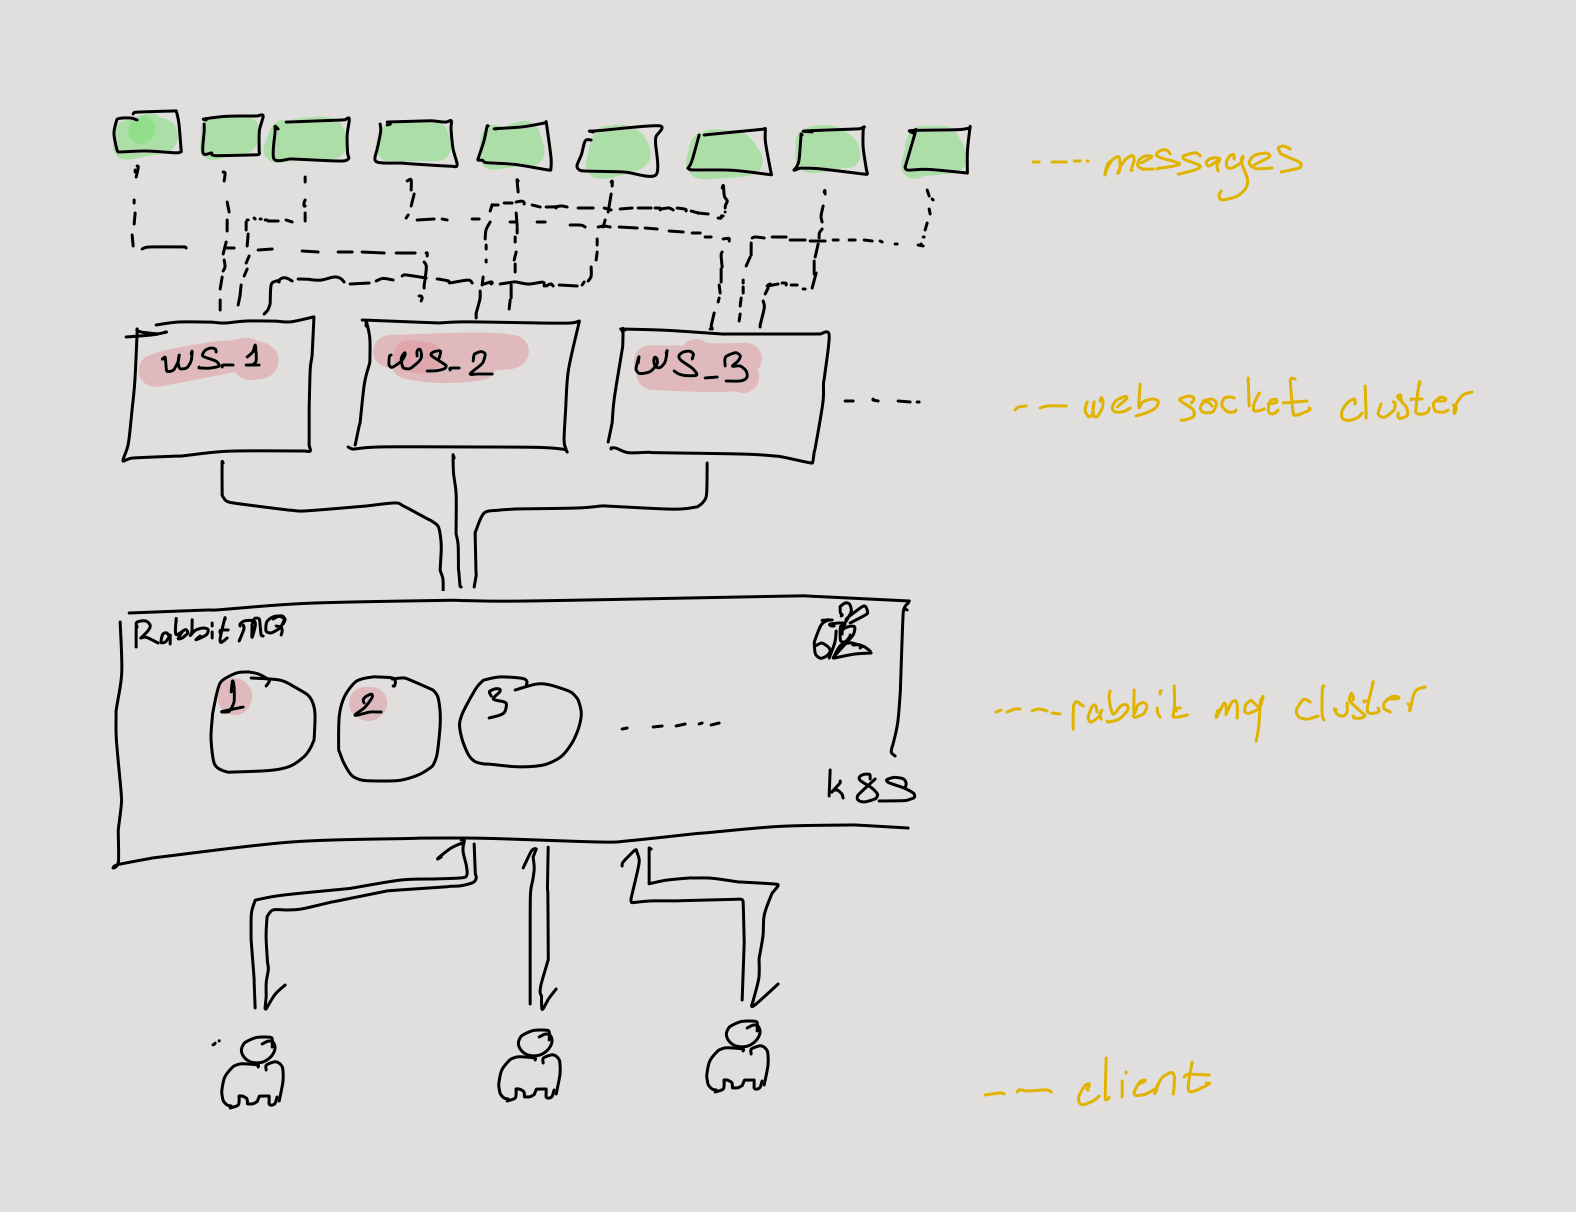 messages
WS_1
WS_2
WS_3
web socket cluster
Rabbit MQ
1
2
3
rabbit mq cluster
k8s
client